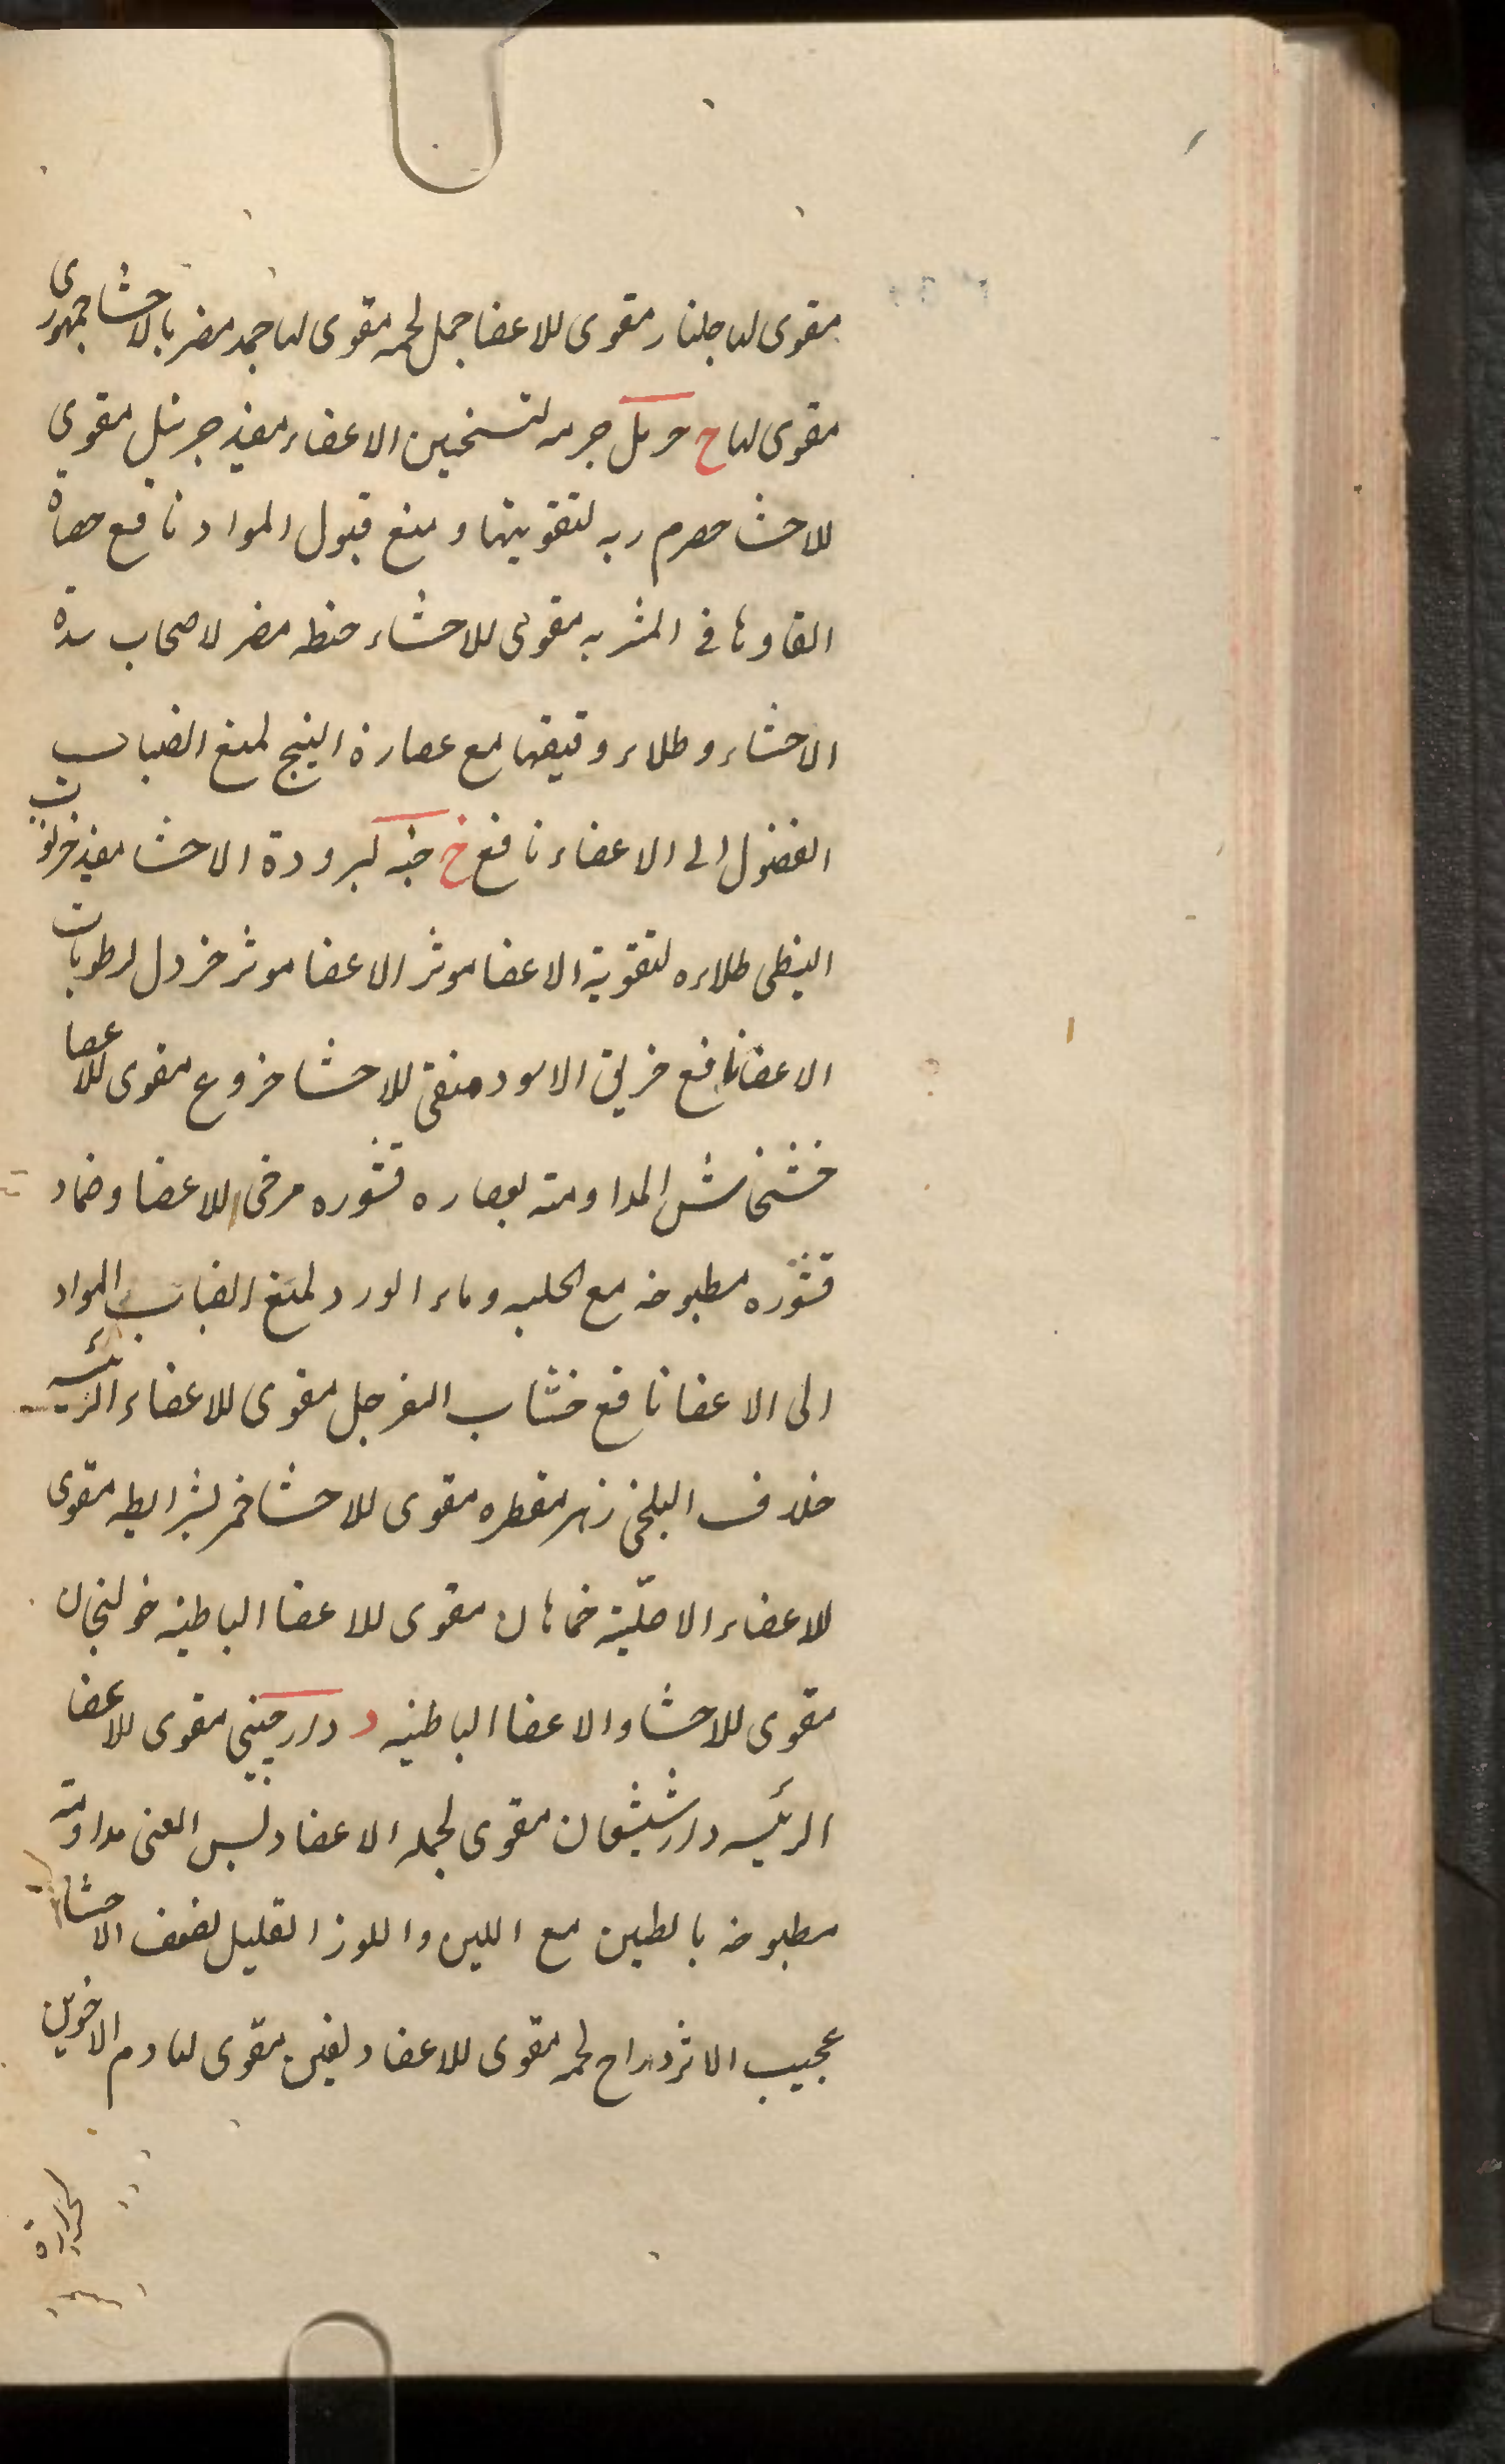 مقوی لها جلنار مقوی للاعضا جمل لحمه مقوی لها جمد مضر بالاحشا جمهوری
مقوی لها ح حرمل جرمه لتسخین الاعضاء مفید مقوی
للاحشا حصرم ربه لتقویتها و منع قبول المواد نافع حصاة
القاوها فی المشربه مقوی للاحشاء حنطه مضر لاصحاب سدة
الاحشاء و طلاء دقیقها مع عصارة البنج لمنع انصباب
الفضول الی الاعضاء نافع خ لبرودة الاحشا مفید خرنوب
النبطی طلاءه لتقویة الاعضا موثر الاعضا موثر خردل لرطوبات
الاعضا نافع خربق الاسود منقی للاحشا خروع مقوی للاعضا
خشخاش المداومته بعصاره قشوره مرخی للاعضا و ضماد
قشوره مطبوخه مع الحلبه و ماء الورد لمنع انصباب المواد
الی الاعضا نافع خشاب السفرجل مقوی للاعضاء الرئیسه
خلاف البلخی زهر مقطره مقوی للاحشا خمر بشرایطه مقوی
للاعضاء الاصلیّة خماهان مقوی للاعضا الباطنه خولنجان
مقوی للاحشا و الاعضا الباطنیه د دارچینی مقوی للاعضا
الرئیسه دارشیشعان مقوی لجمله الاعضا دبس العنب مداومته
مطبوخه بالطین مع اللبن و اللوز القلیل لضعف الاحشا
عجیب الاثر دراج لحمه مقوی للاعضا مقوی لها دم الاخوین
لحرارة